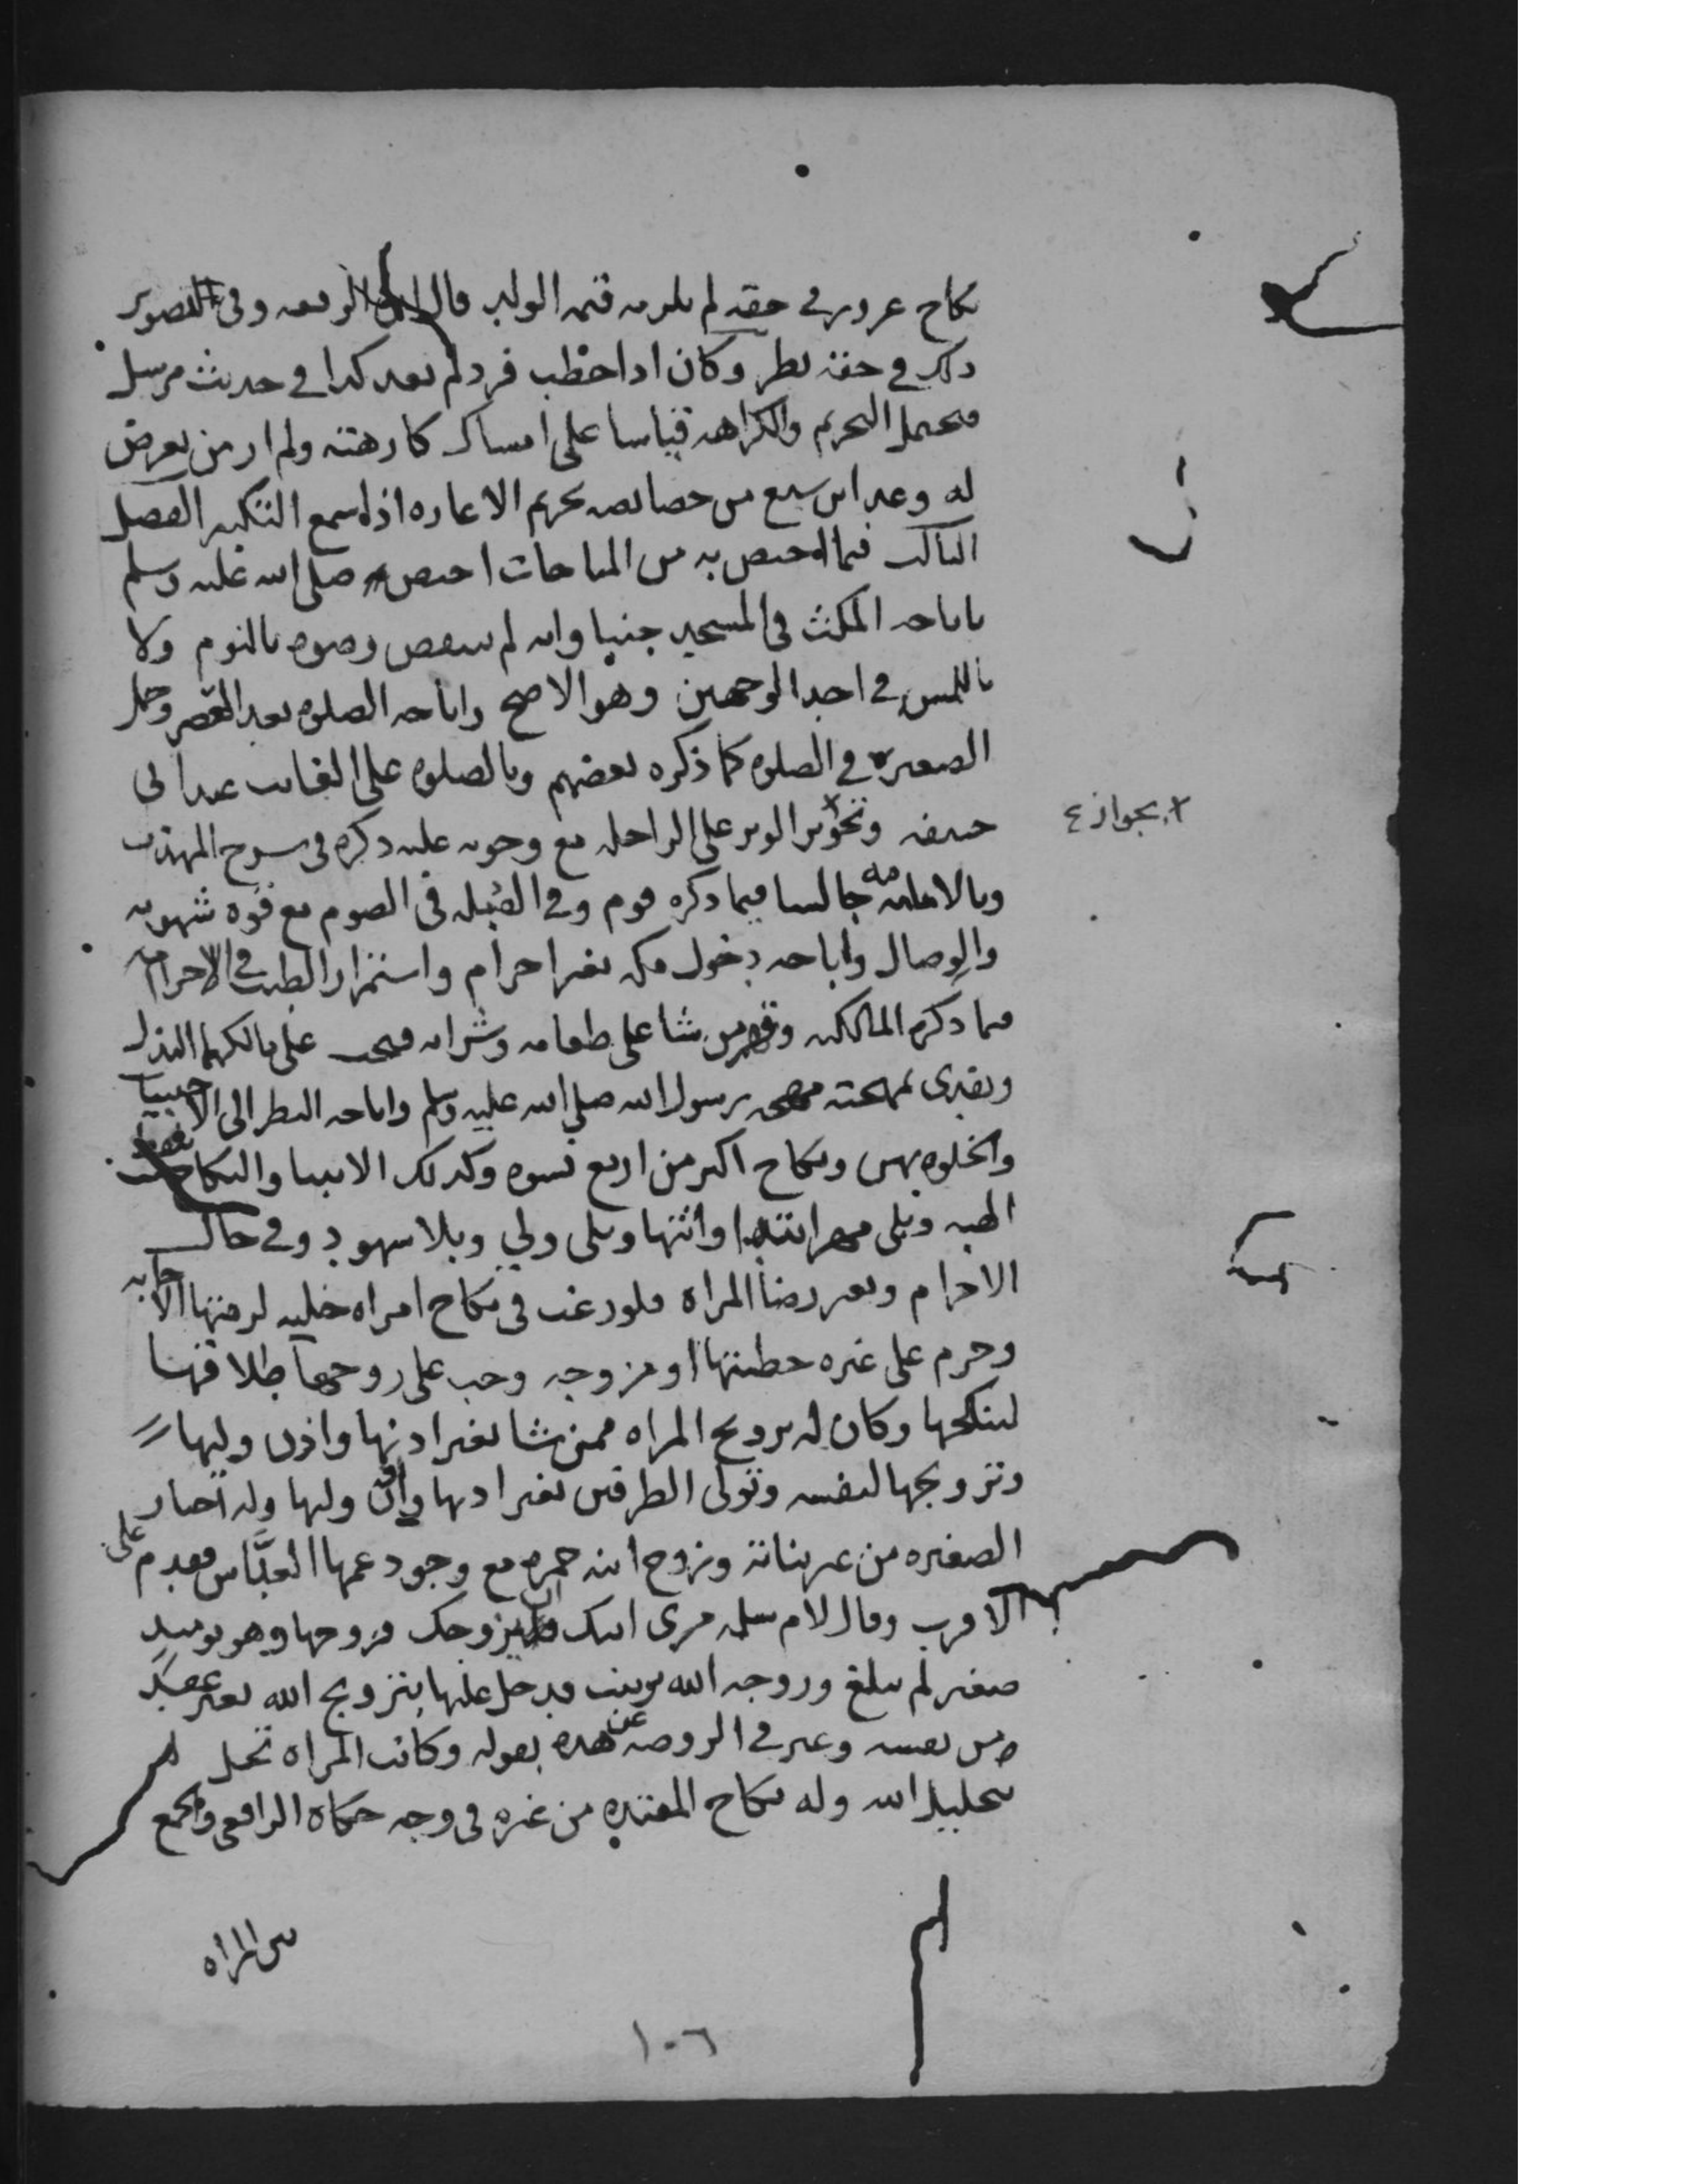 نكاح غرور في حقه لم يلزمه قيمة الولد قال ابن الرفعة وفي تصوير
ذلك في حقه نظر وكان اذا خطب فرد لم يعد كذا في حديث مرسل
فيحتمل التحريم والكراهة قياسا على امساك كارهته ولم ار من تعرض
له وعد ابن سبع من خصائصه تحريم الاغارة اذا سمع التكبير الفصل
الثالث فيما اختص به من المباحات اختص صلى الله عليه وسلم
باباحة المكث في المسجد جنبا وانه لم ينتقض وضوه بالنوم ولا
باللمس في احد الوجهين وهو الاصح واباحة الصلوة بعد العصر وحمل
الصغيرة في الصلوة كما ذكره بعضهم وبالصلوة على الغائب عند ابي
حنيفة وبجواز الوتر على الراحلة مع وجوبه عليه ذكره في شرح المهذب
وبالامامة جالسا فيما ذكره قوم وفي القبلة في الصوم مع قوة شهوته
والوصال واباحة دخول مكة بغير احرام واستمرار الطيب في الاحرام
فيما ذكره المالكية وقهر من شا على طعامه وشرابه فيجب على مالكهما البذل
ويفدي بمهجته مهجة رسول الله صلى الله عليه وسلم واباحة النظر الى الاجنبيا
والخلوة بهن ونكاح اكثر من اربع نسوة وكذلك الانبيا والنكاح بلفظ
الهبة وبلى مهر ابتدا وانتها وبلى ولي وبلا شهود وفي حال
الاحرام وبغير رضا المراة فلو رغب في نكاح امراة خلية لزمتها الاجابة
وحرم على غيره خطبتها او مزوجة وجب على زوجها طلاقها
لينكحها وكان له تزويج المراة ممن شا بغير اذنها واذن وليها
وتزويجها لنفسه وتولى الطرفين بغير اذنها واذن وليها وله اجبار
الصغيرة من غير بناته وزوج ابنة حمزة مع وجود عمها العباس فقدم على
الاقرب وقال لام سلمة مري ابنك ان يزوجك فزوجها وهو يوميذ
صغير لم يبلغ وزوجه الله بزينب فدخل عليها بتزويج الله بغير عقد
من نفسه وعبر في الروضة عن هذه بقوله وكانت المراة تحل له
بتحليل الله وله نكاح المعتدة من غيره في وجه حكاه الرافعي والجمع
بين المراة
بجواز
١٠٦